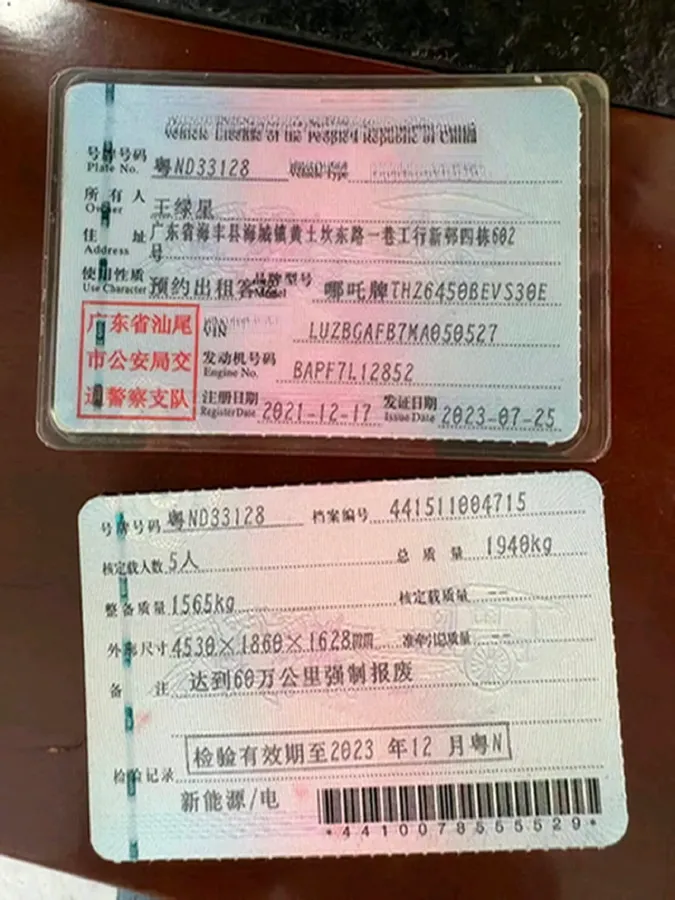 Vehicle License of the People's Republic of China
号牌号码 粤ND33128
Plate No. Vehicle Type
所有人 王绿星
Owner
住址 广东省海丰县海城镇黄土坎东路一巷工行新邨四栋602
Address 号
使用性质 预约出租客运 品牌型号 哪吒牌THZ6450BEVS30E
Use Character Model
广东省汕尾
市公安局交
通警察支队
VIN LUZBGAFB7MA050527
发动机号码 BAPF7L12852
Engine No.
注册日期 2021-12-17 发证日期 2023-07-25
Register Date Issue Date
号牌号码 粤ND33128 档案编号 441511004715
核定载人数 5人 总质量 1940kg
整备质量 1565kg 核定载质量 --
外廓尺寸 4530×1860×1628mm 准牵引总质量 --
备注 达到60万公里强制报废
检验有效期至2023年12月粤N
检验记录
新能源/电
*4410078555529*